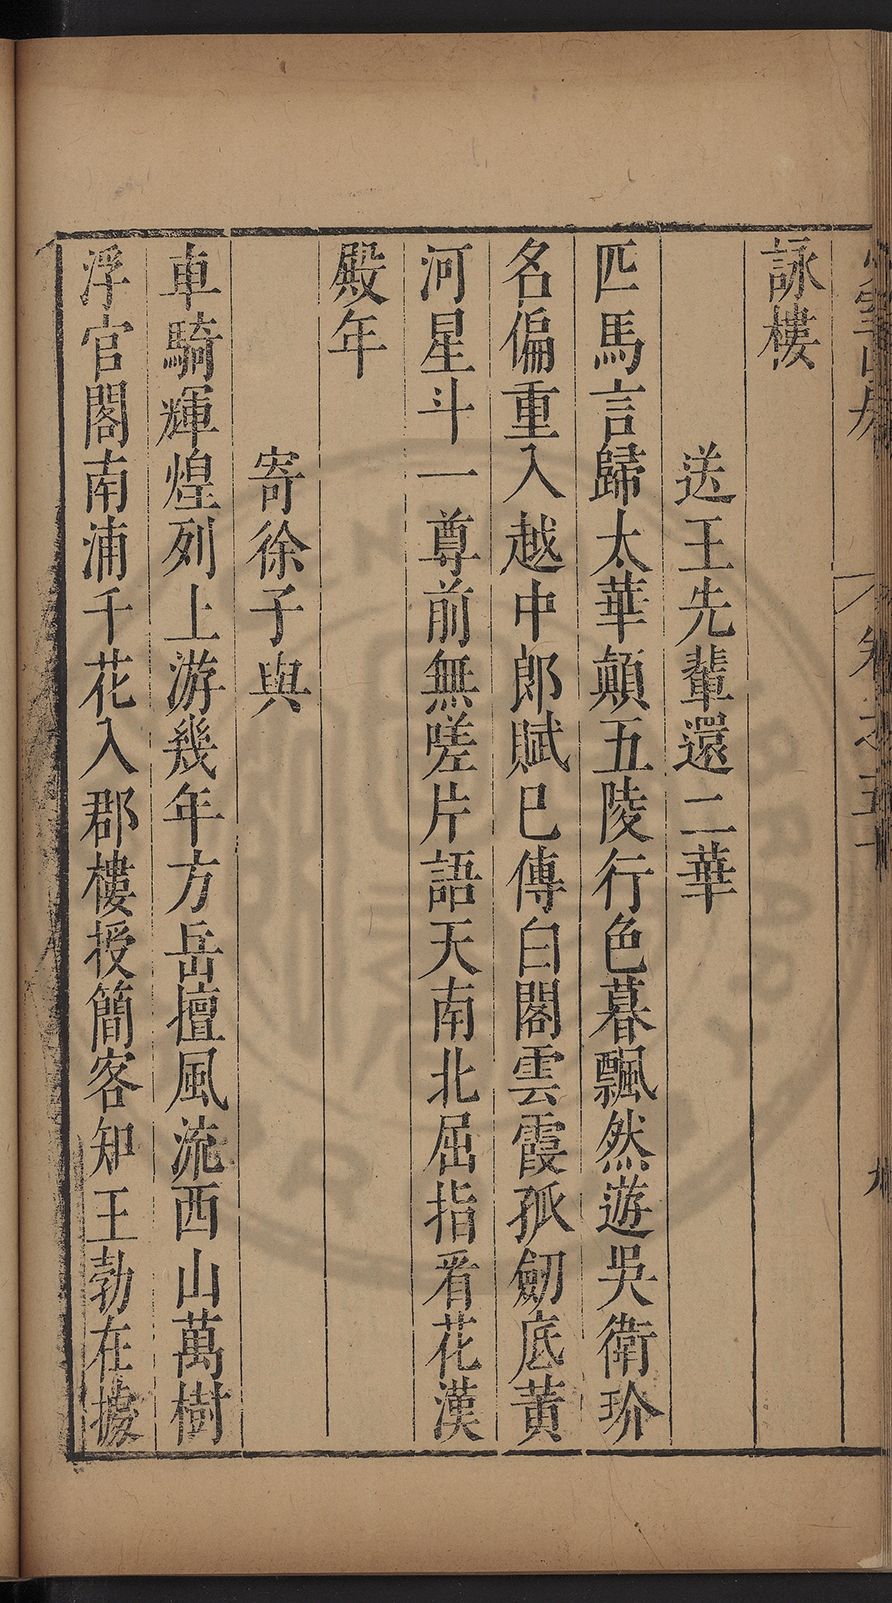 詠樓
送王先輩還二華
匹馬言歸太華顛五陵行色暮飄然遊吳衛玠
名偏重入越中郎賦已傳白閣雲霞孤劒底黃
河星斗一尊前無嗟片語天南北屈指看花漢
殿年
寄徐子與
車騎輝煌列上游幾年方岳擅風流西山萬樹
浮官閣南浦千花入郡樓授簡客知王勃在據